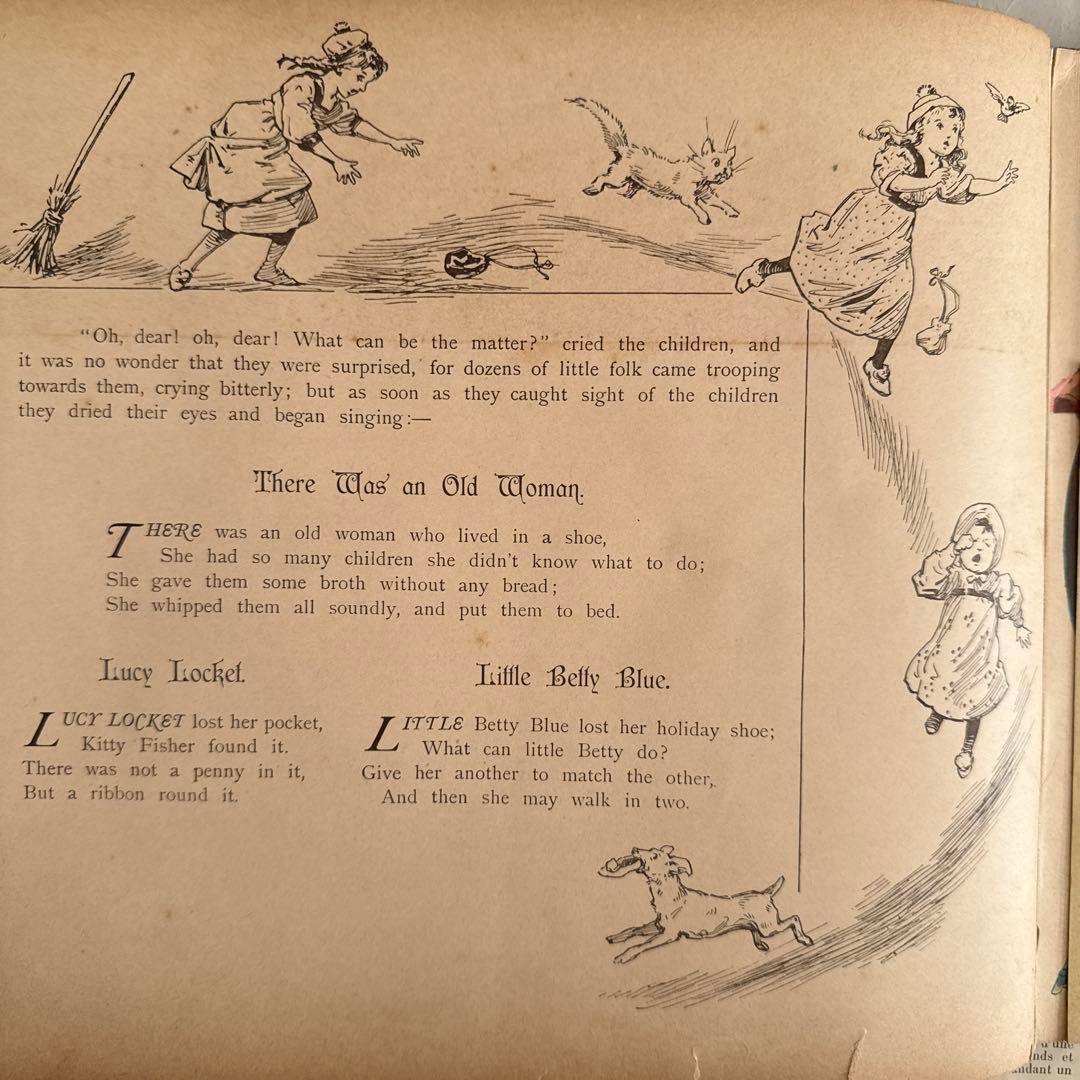 "Oh, dear! oh, dear! What can be the matter?" cried the children, and
it was no wonder that they were surprised, for dozens of little folk came trooping
towards them, crying bitterly; but as soon as they caught sight of the children
they dried their eyes and began singing:—
There Was an Old Woman.
THERE was an old woman who lived in a shoe,
She had so many children she didn't know what to do;
She gave them some broth without any bread;
She whipped them all soundly, and put them to bed.
Lucy Locket.
LUCY LOCKET lost her pocket,
Kitty Fisher found it.
There was not a penny in it,
But a ribbon round it.
Little Betty Blue.
LITTLE Betty Blue lost her holiday shoe;
What can little Betty do?
Give her another to match the other,
And then she may walk in two.
d'une
nds et
andant un